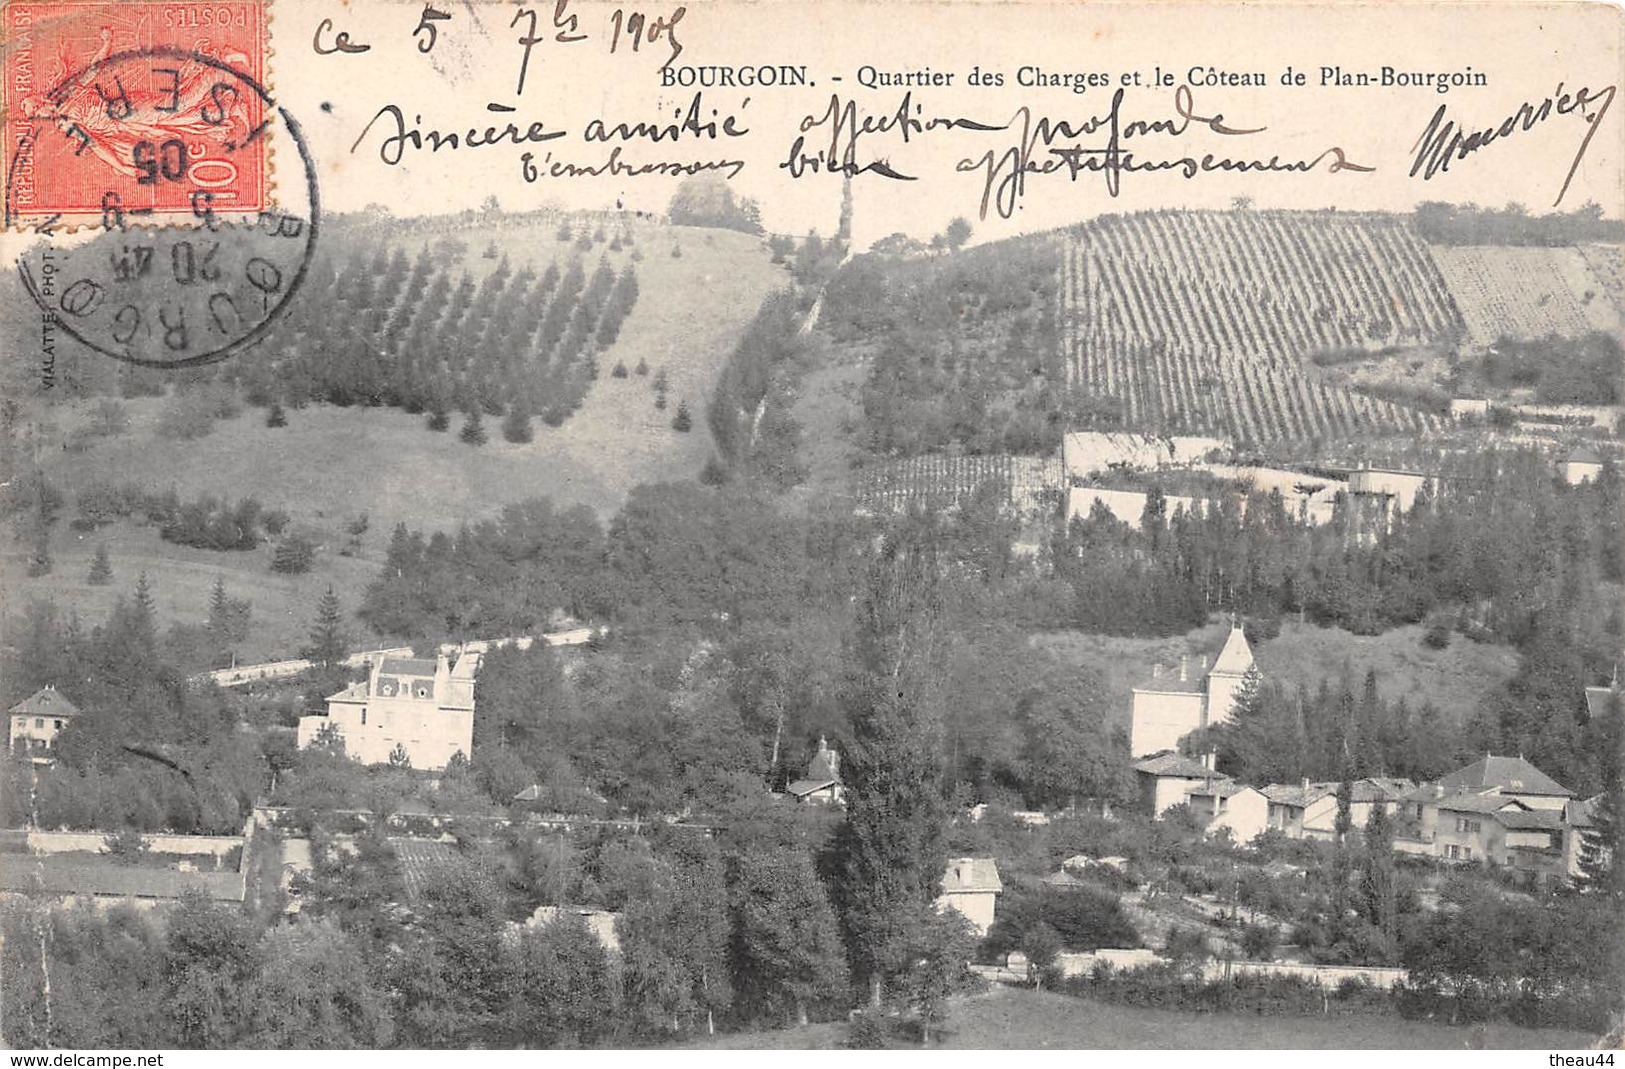 ce 5 7bre 1905
BOURGOIN. - Quartier des Charges et le Côteau de Plan-Bourgoin
Sincère amitié affection profonde
t'embrassons bien affectueusement
Maurice
POSTES
REPUBLIQUE FRANÇAISE
10c
BOURGOIN
ISERE
20 45
5 -9
05
VIALATTE PHOT. A
www.delcampe.net
theau44